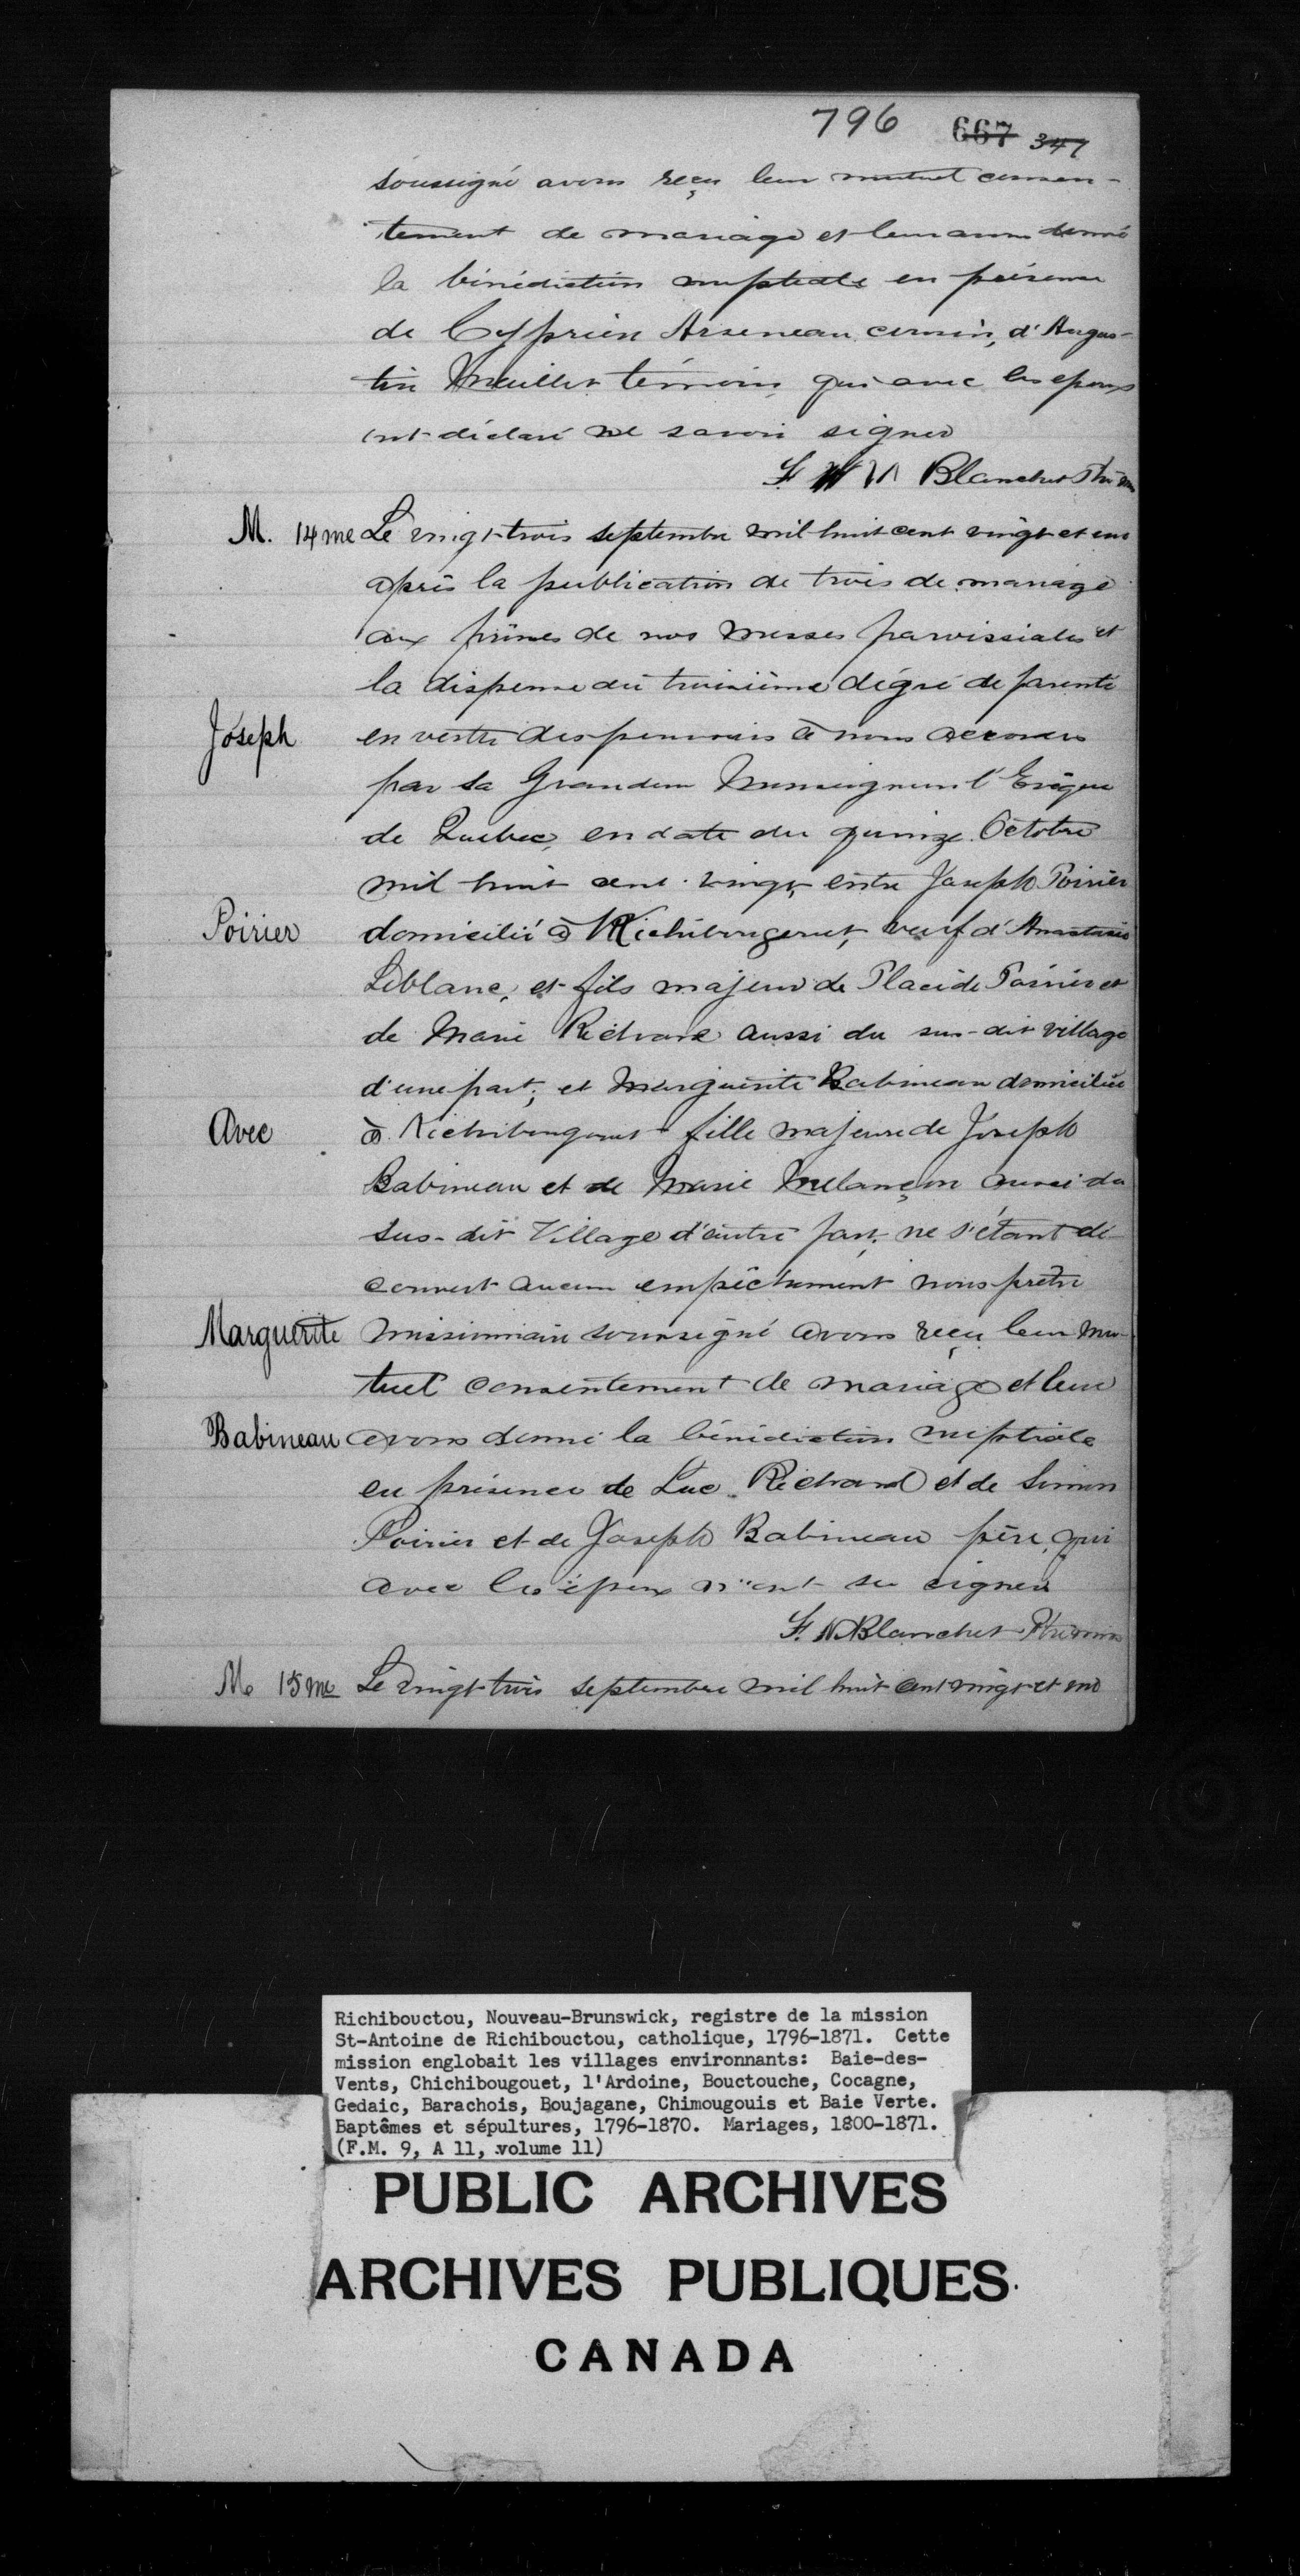 796 667 347
soussigné avons reçu leur mutuel consen-
tement de mariage et leur avons donné
la bénédiction nuptiale en présence
de Cyprien Arseneau cousin, d'Augus-
tin Maillet témoins qui avec les epoux
ont déclaré ne savoir signer
F. N Blanchet Ptre Miss
M. 14me Le vingt-trois septembre mil huit cent vingt et un
après la publication de trois de mariage
aux prônes de nos messes paroissiales et
la dispense du troisième dégré de parenté
Joseph en vertu des pouvoirs à nous accordés
par sa Grandeur Monseigneur l'Evêque
de Quebec, en date du quinze Octobre
mil huit cent vingt, entre Joseph Poirier
Poirier domicilié à Richibougouet, veuf d'Anastasie
Leblanc, et fils majeur de Placide Poirier et
de Marie Richard aussi du sus-dit village
d'une part; et Marguerite Babineau domiciliée
Avec à Richibougouet fille majeure de Joseph
Babineau et de Marie Melançon aussi du
sus-dit Village d'autre part, ne s'étant dé-
couvert aucun empêchement nous prêtre
Marguerite missionnaire soussigné avons reçu leur mu-
tuel consentement de mariage et leur
Babineau avons donné la bénédiction nuptiale
en présence de Luc Richard et de Simon
Poirier et de Joseph Babineau père, qui
avec les époux n'ont su signer
F. N Blanchet Ptre miss
M. 15me Le vingt trois septembre mil huit cent vingt et un
Richibouctou, Nouveau-Brunswick, registre de la mission
St-Antoine de Richibouctou, catholique, 1796-1871. Cette
mission englobait les villages environnants: Baie-des-
Vents, Chichibougouet, l'Ardoine, Bouctouche, Cocagne,
Gedaic, Barachois, Boujagane, Chimougouis et Baie Verte.
Baptêmes et sépultures, 1796-1870. Mariages, 1800-1871.
(F.M. 9, A 11, volume 11)
PUBLIC ARCHIVES
ARCHIVES PUBLIQUES
CANADA